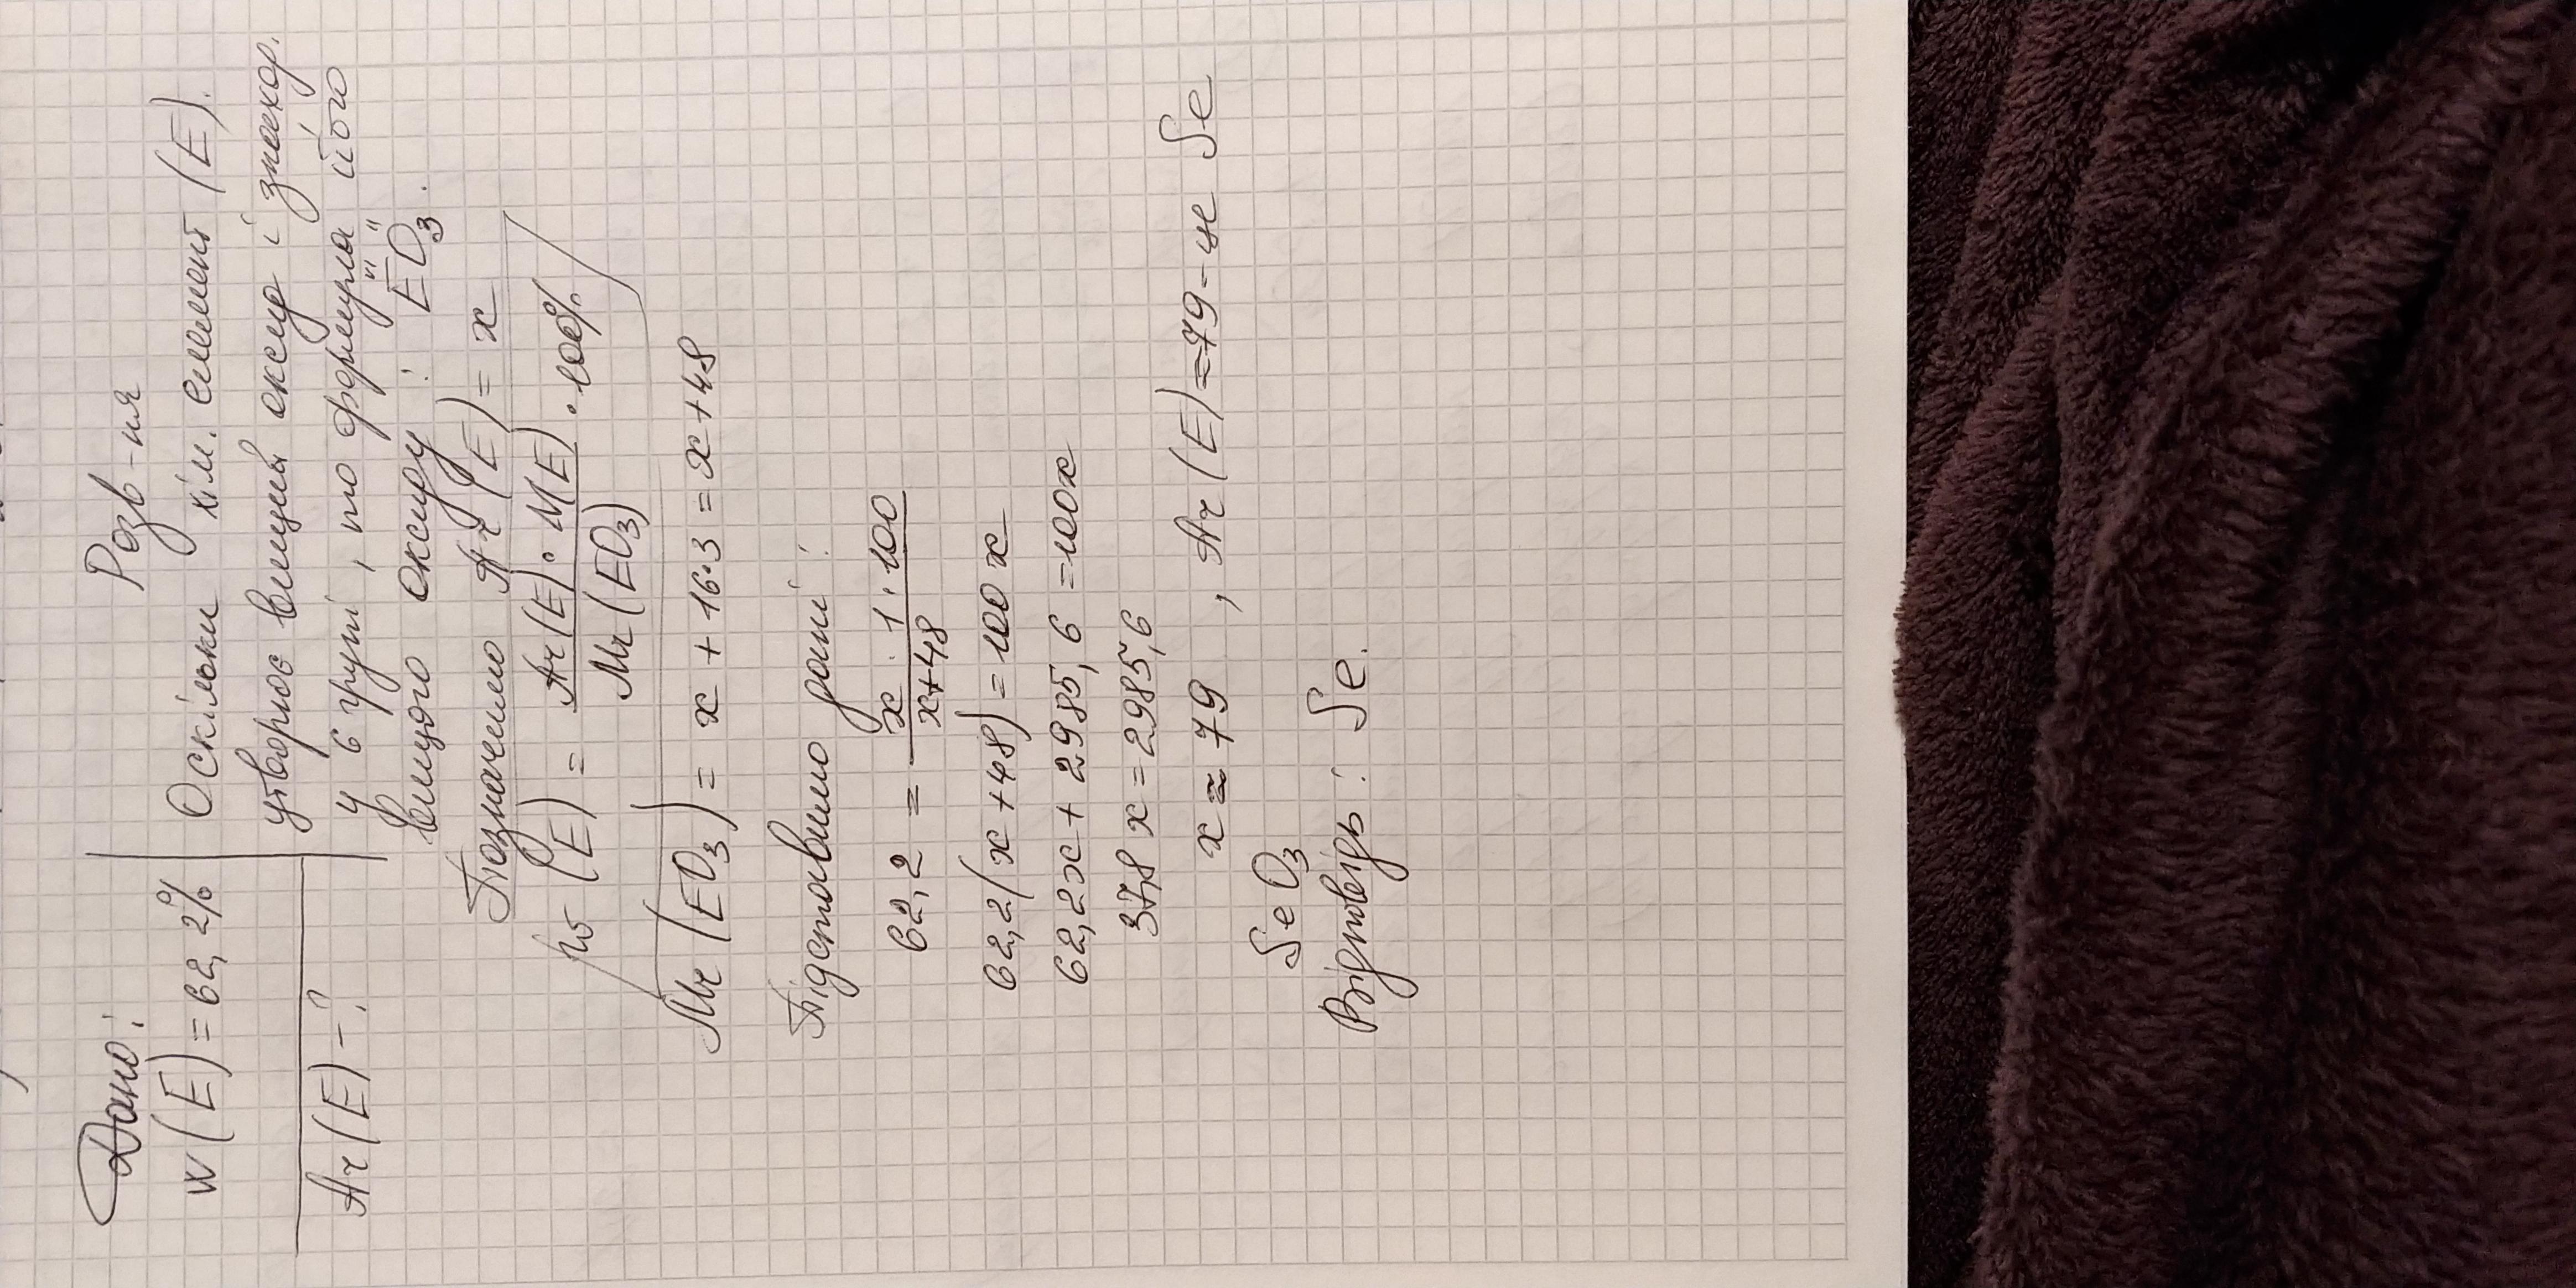 Дано:
W(E) = 62,2%
Ar(E) - ?
Розв-ня
Оскільки хім. елемент (E).
утворює вищий оксид і знаход.
у 6 групі, то формула його
вищого оксиду: "EO₃".
Позначимо Ar(E) = x
(E) = Ar(E) · N(E) · 100%
Mr(EO₃)
Mr(EO₃) = x + 16·3 = x+48
Підставимо дані:
62,2 = x · 1 · 100
x+48
62,2(x+48) = 100x
62,2x + 2985,6 = 100x
37,8x = 2985,6
x ≈ 79, Ar(E) = 79 - це Se
SeO₃
Відповідь: Se.